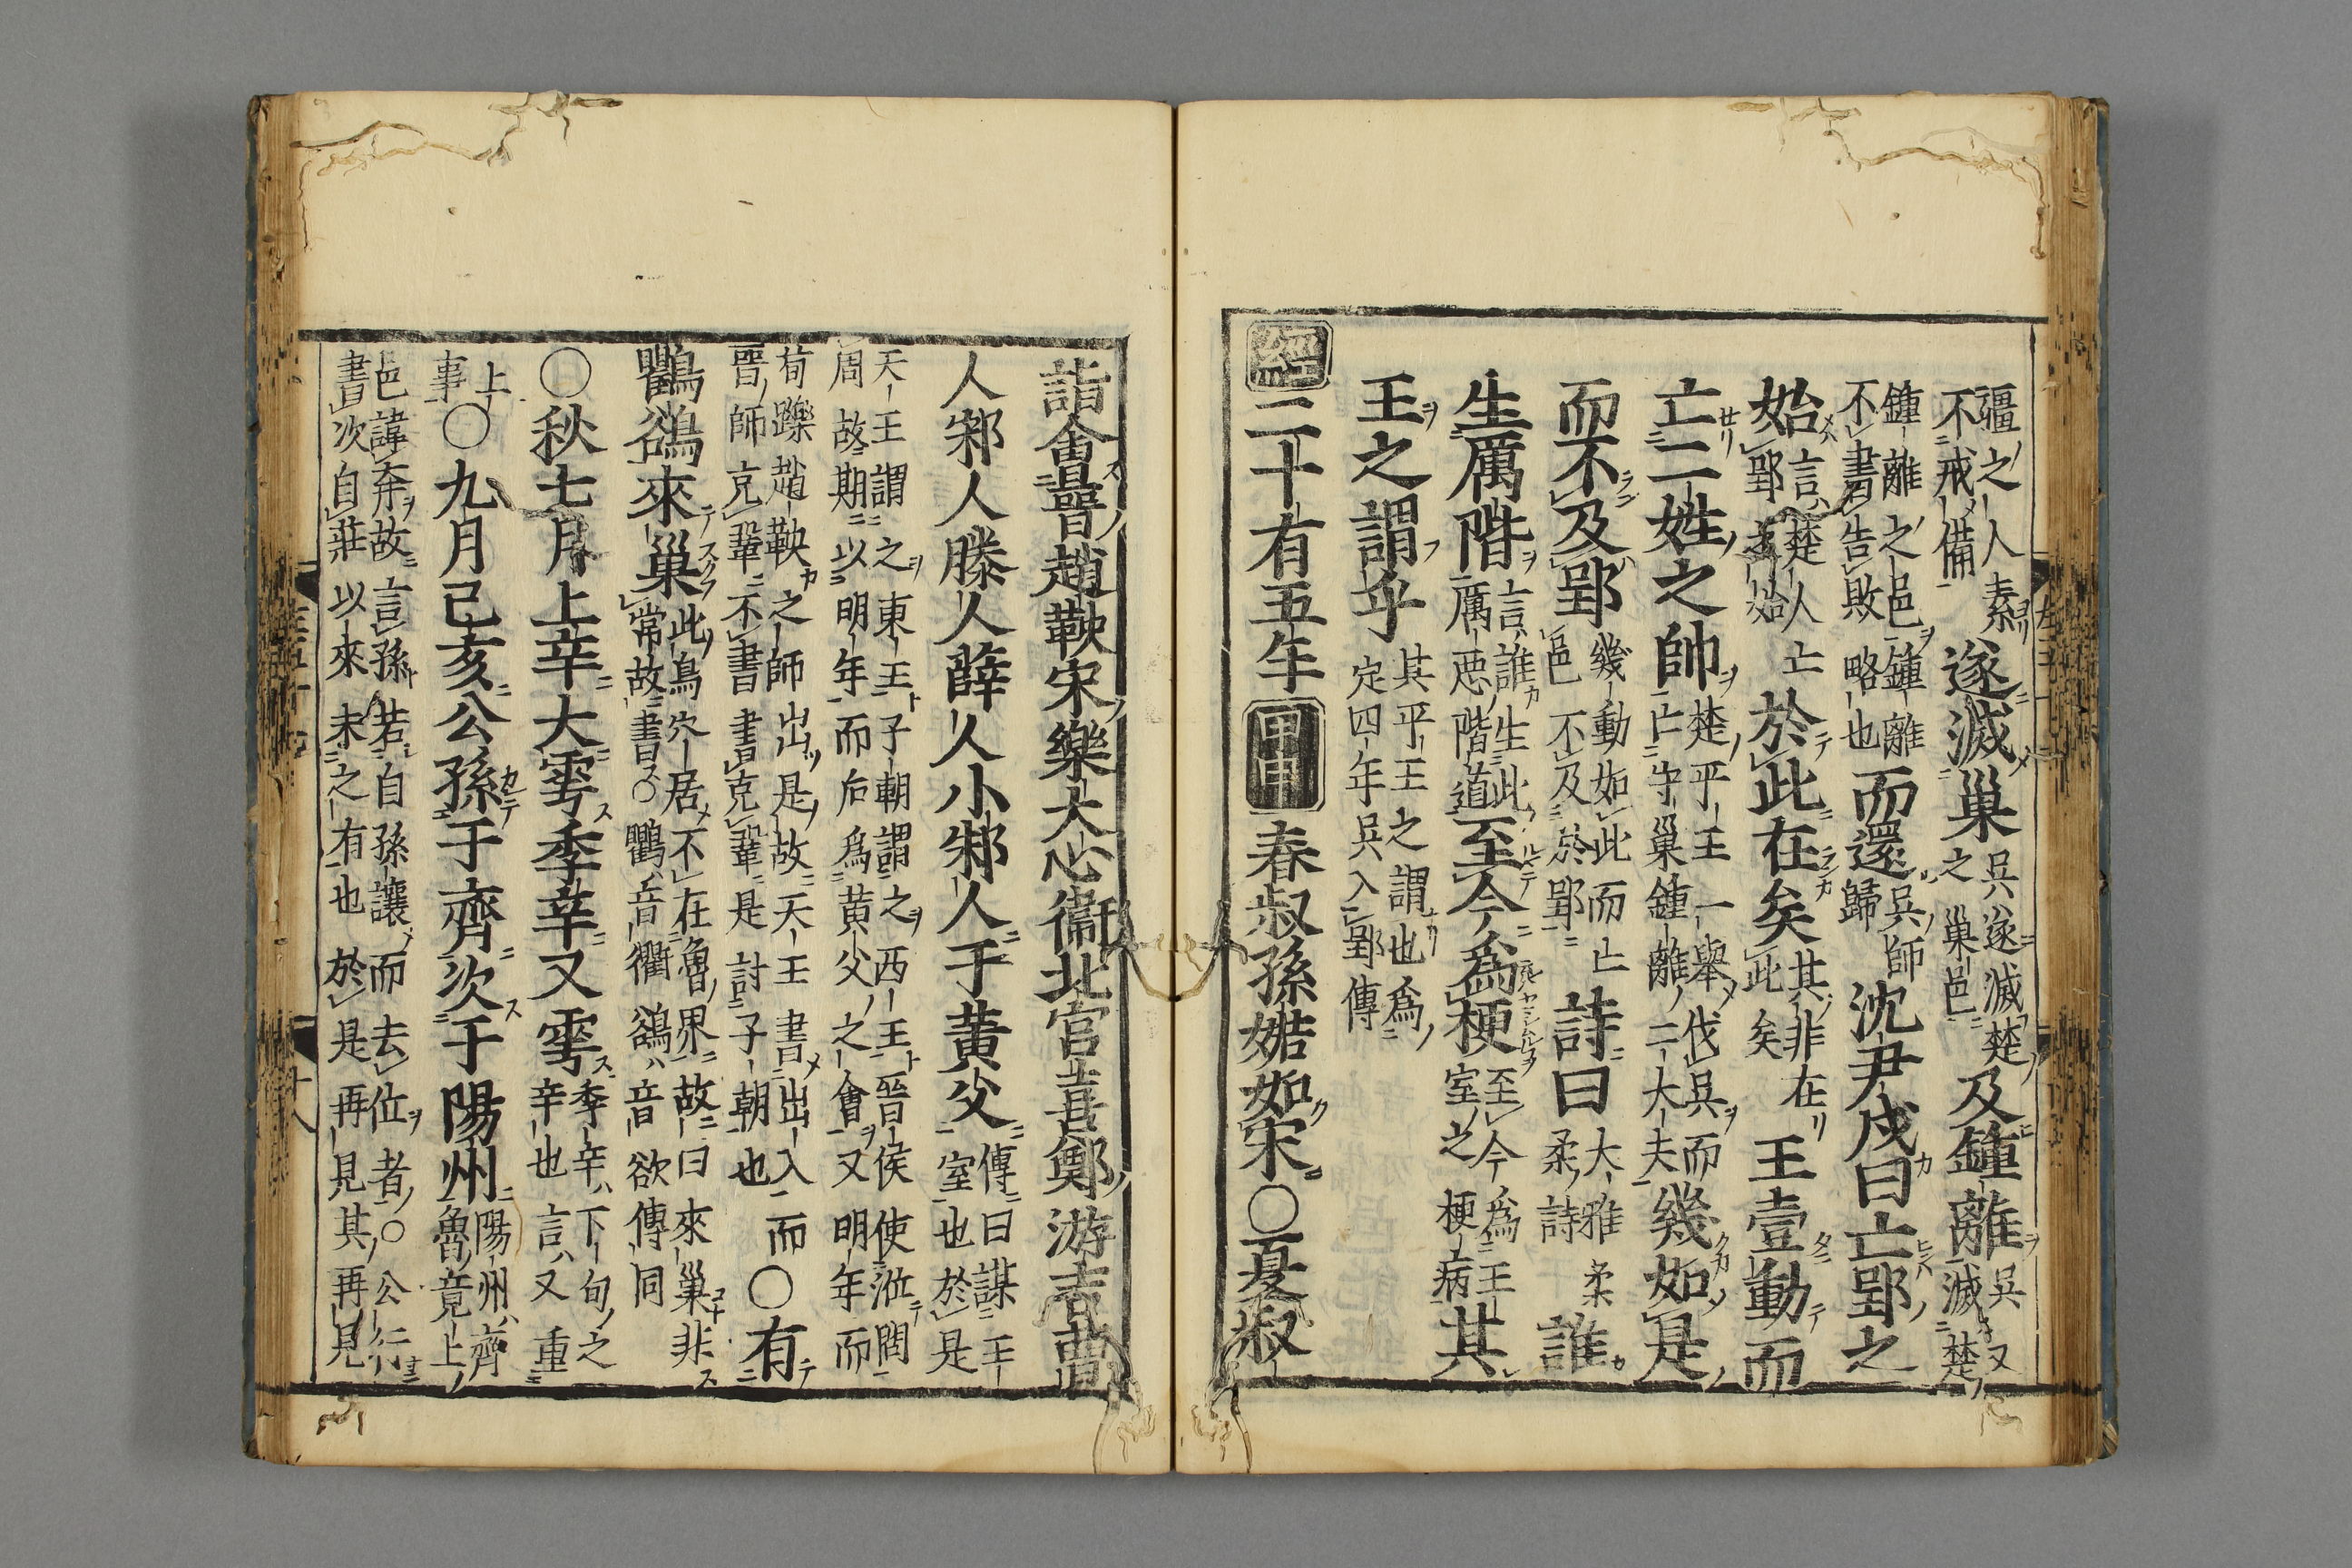 疆之人素不戒備遂滅巢呉遂滅楚之巢邑及鍾離呉又滅楚
鍾離之邑鍾離不書告敗略也而還呉師歸沈尹戌曰亡郢之
始言楚人亡郢之始於此在矣其非在此矣王壹動而
亡二姓之帥楚平王一舉伐呉而亡守巢鍾離二大夫幾如是
而不及郢幾動如此而亡邑不及於郢詩曰大雅柔柔詩誰
生厲階言誰生此厲惡階道至今爲梗至今爲王室之梗病其
王之謂乎其平王之謂也爲定四年呉入郢傳
經二十有五年甲申春叔孫婼如宋○夏叔
詣會晉趙鞅宋樂大心衞北宮喜鄭游吉曹
人邾人滕人薛人小邾人于黄父傳曰謀王室也於是
天王謂之東王子朝謂之西王晉侯使涖問周故期以明年而后爲黄父之會又明年而
荀躒趙鞅之師出是故天王書出入而晉師克鞏不書書克鞏是討子朝也○有
鸜鵒來巢此鳥穴居不在魯界故曰來巢非常故書○鸜音衢鵒音欲傳同
○秋七月上辛大雩季辛又雩季辛下旬之辛也言又重
上事○九月己亥公孫于齊次于陽州陽州齊魯竟上
邑諱奔故言孫若自孫讓而去位者○公行書次自莊以來未之有也於是再見其再見